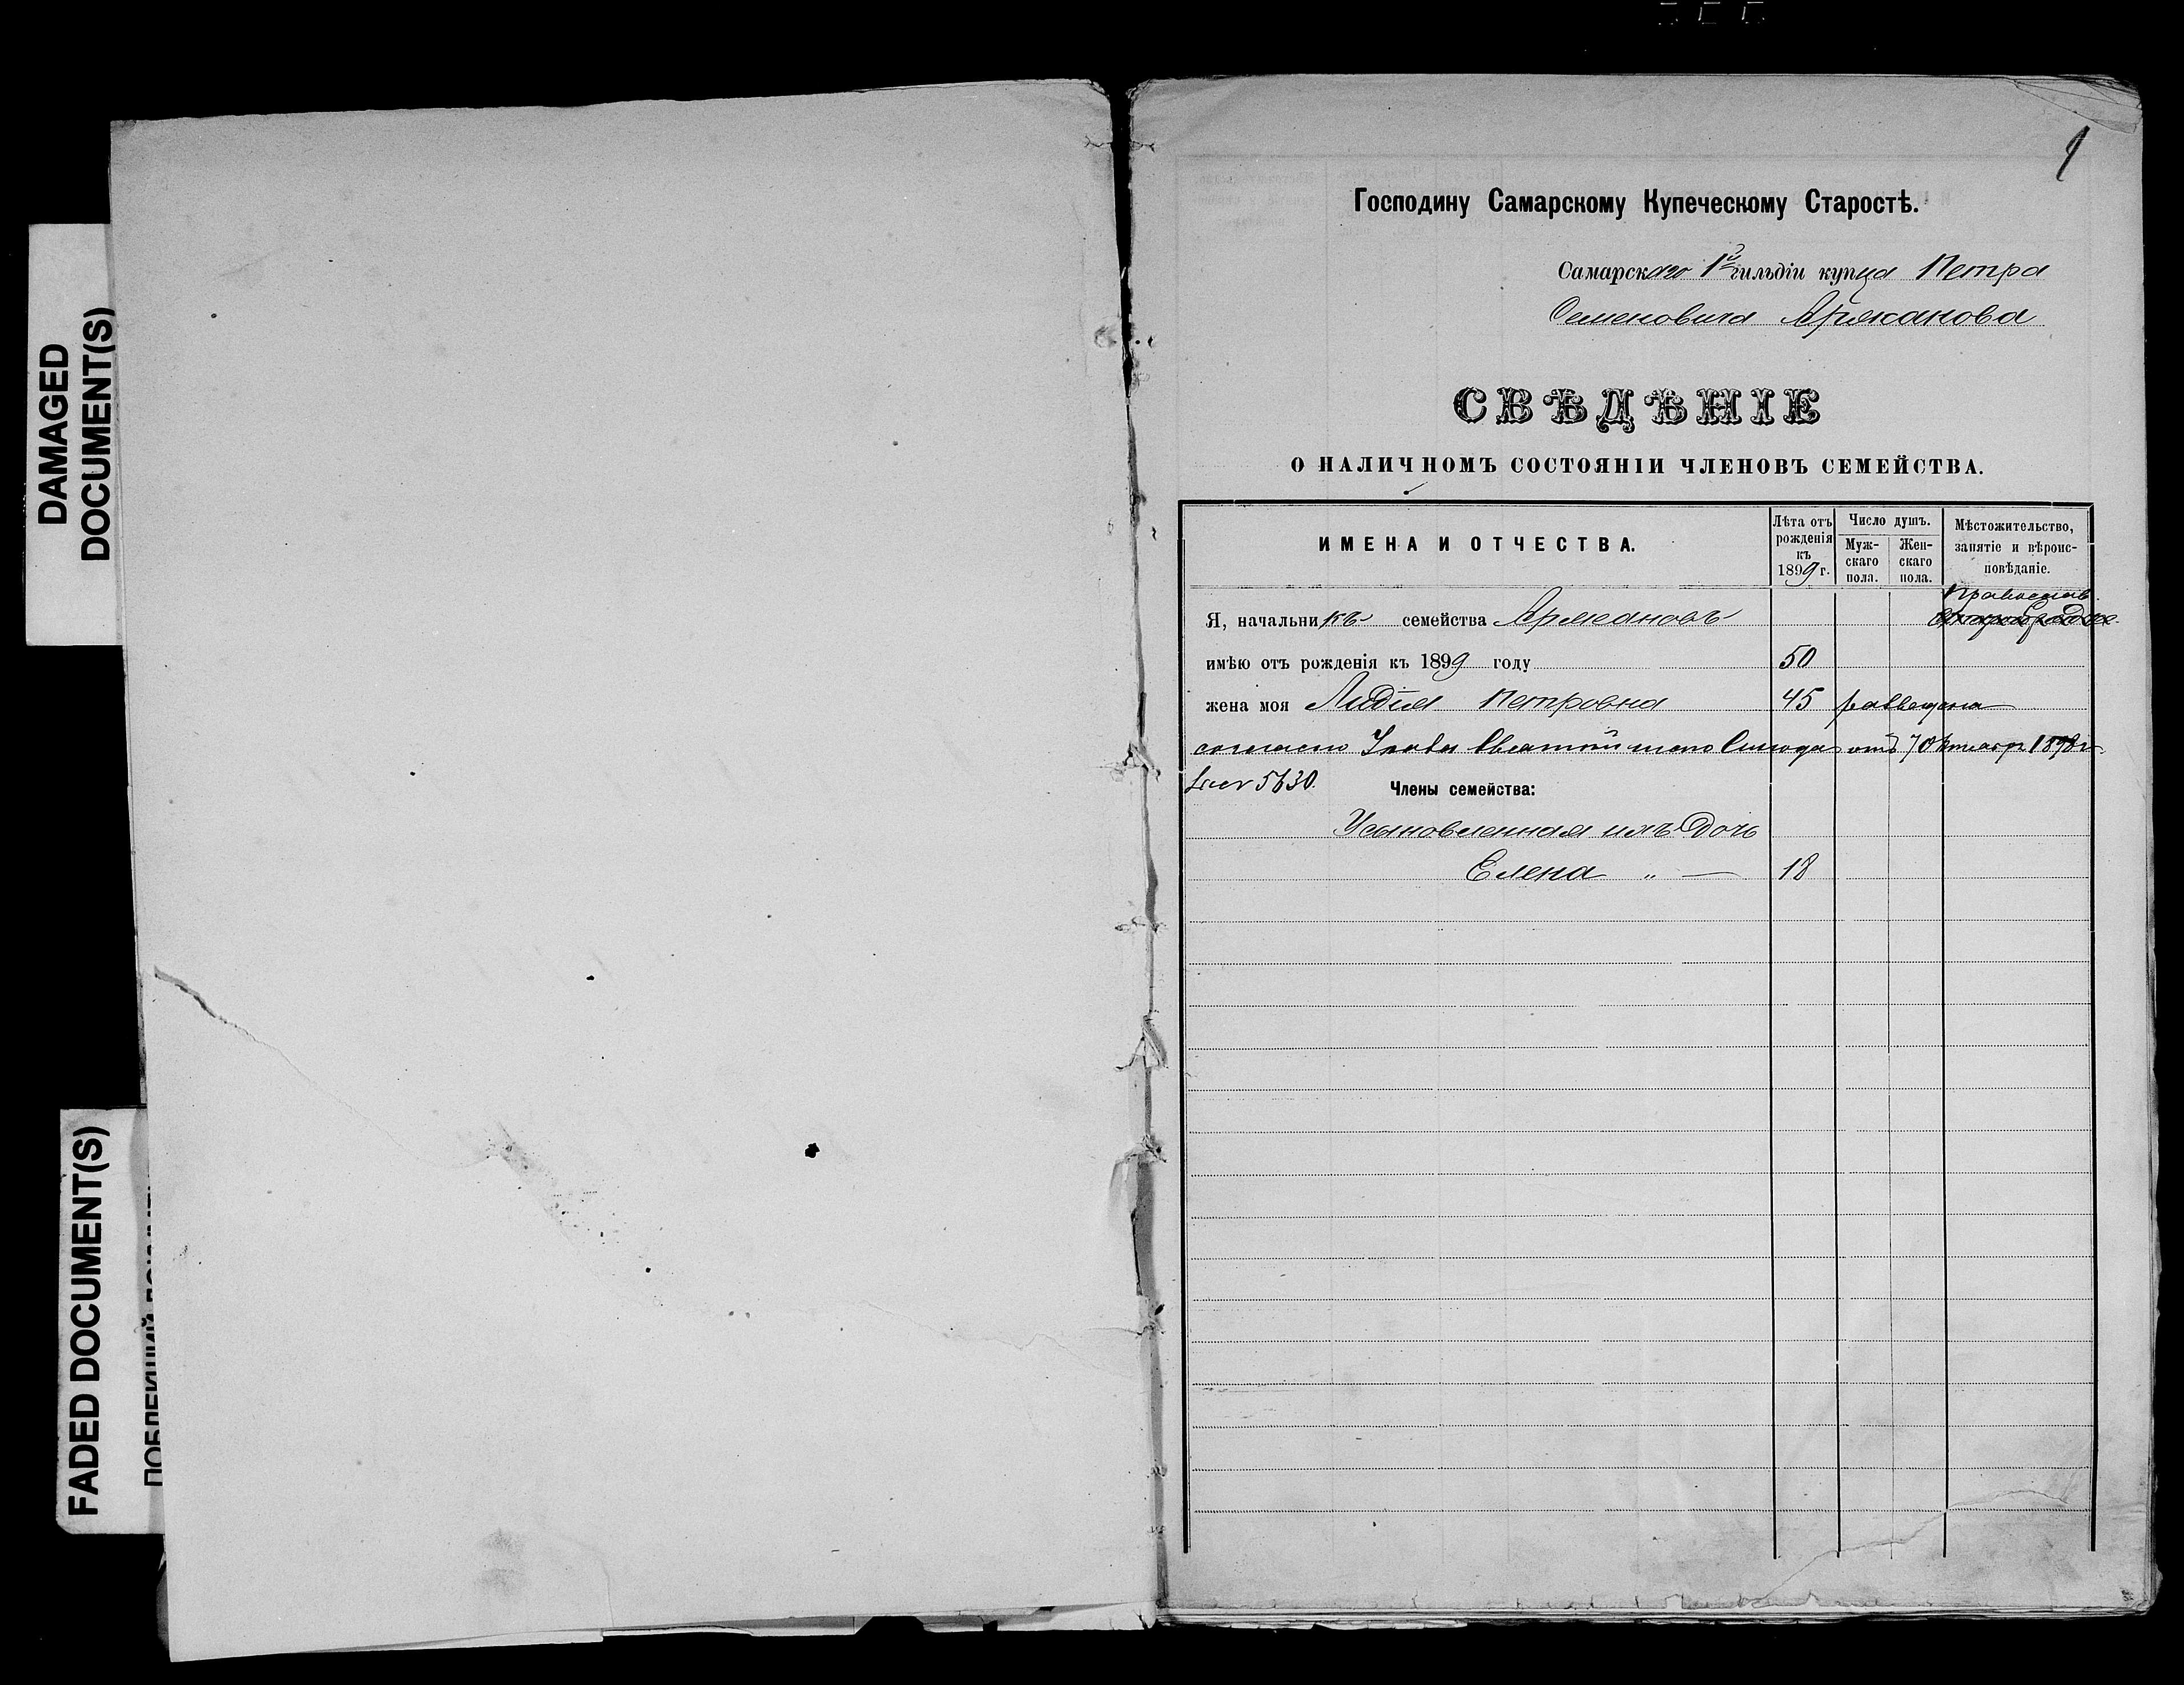 DAMAGED
DOCUMENT(S)
FADED DOCUMENT(S)
1
Господину Самарскому Купеческому Старостѣ.
Самарскаго 1й гильдіи купца Петра
Семеновича Аржанова
СВѢДѢНІЕ
О НАЛИЧНОМЪ СОСТОЯНІИ ЧЛЕНОВЪ СЕМЕЙСТВА.
ИМЕНА И ОТЧЕСТВА.
Лѣта отъ рожденія къ 1899 г.
Число душъ.
Мужскаго пола.
Женскаго пола.
Мѣстожительство, занятіе и вѣроисповѣданіе.
Православ.
Я, начальникъ семейства Аржановъ
имѣю отъ рожденія къ 1899 году 50
жена моя Лидія Петровна 45 разведена
согласно Указа Святѣйшаго Синода отъ 7 Октября 1898 г.
за № 5630.
Члены семейства:
Усыновленная ихъ дочь
Елена " — 18